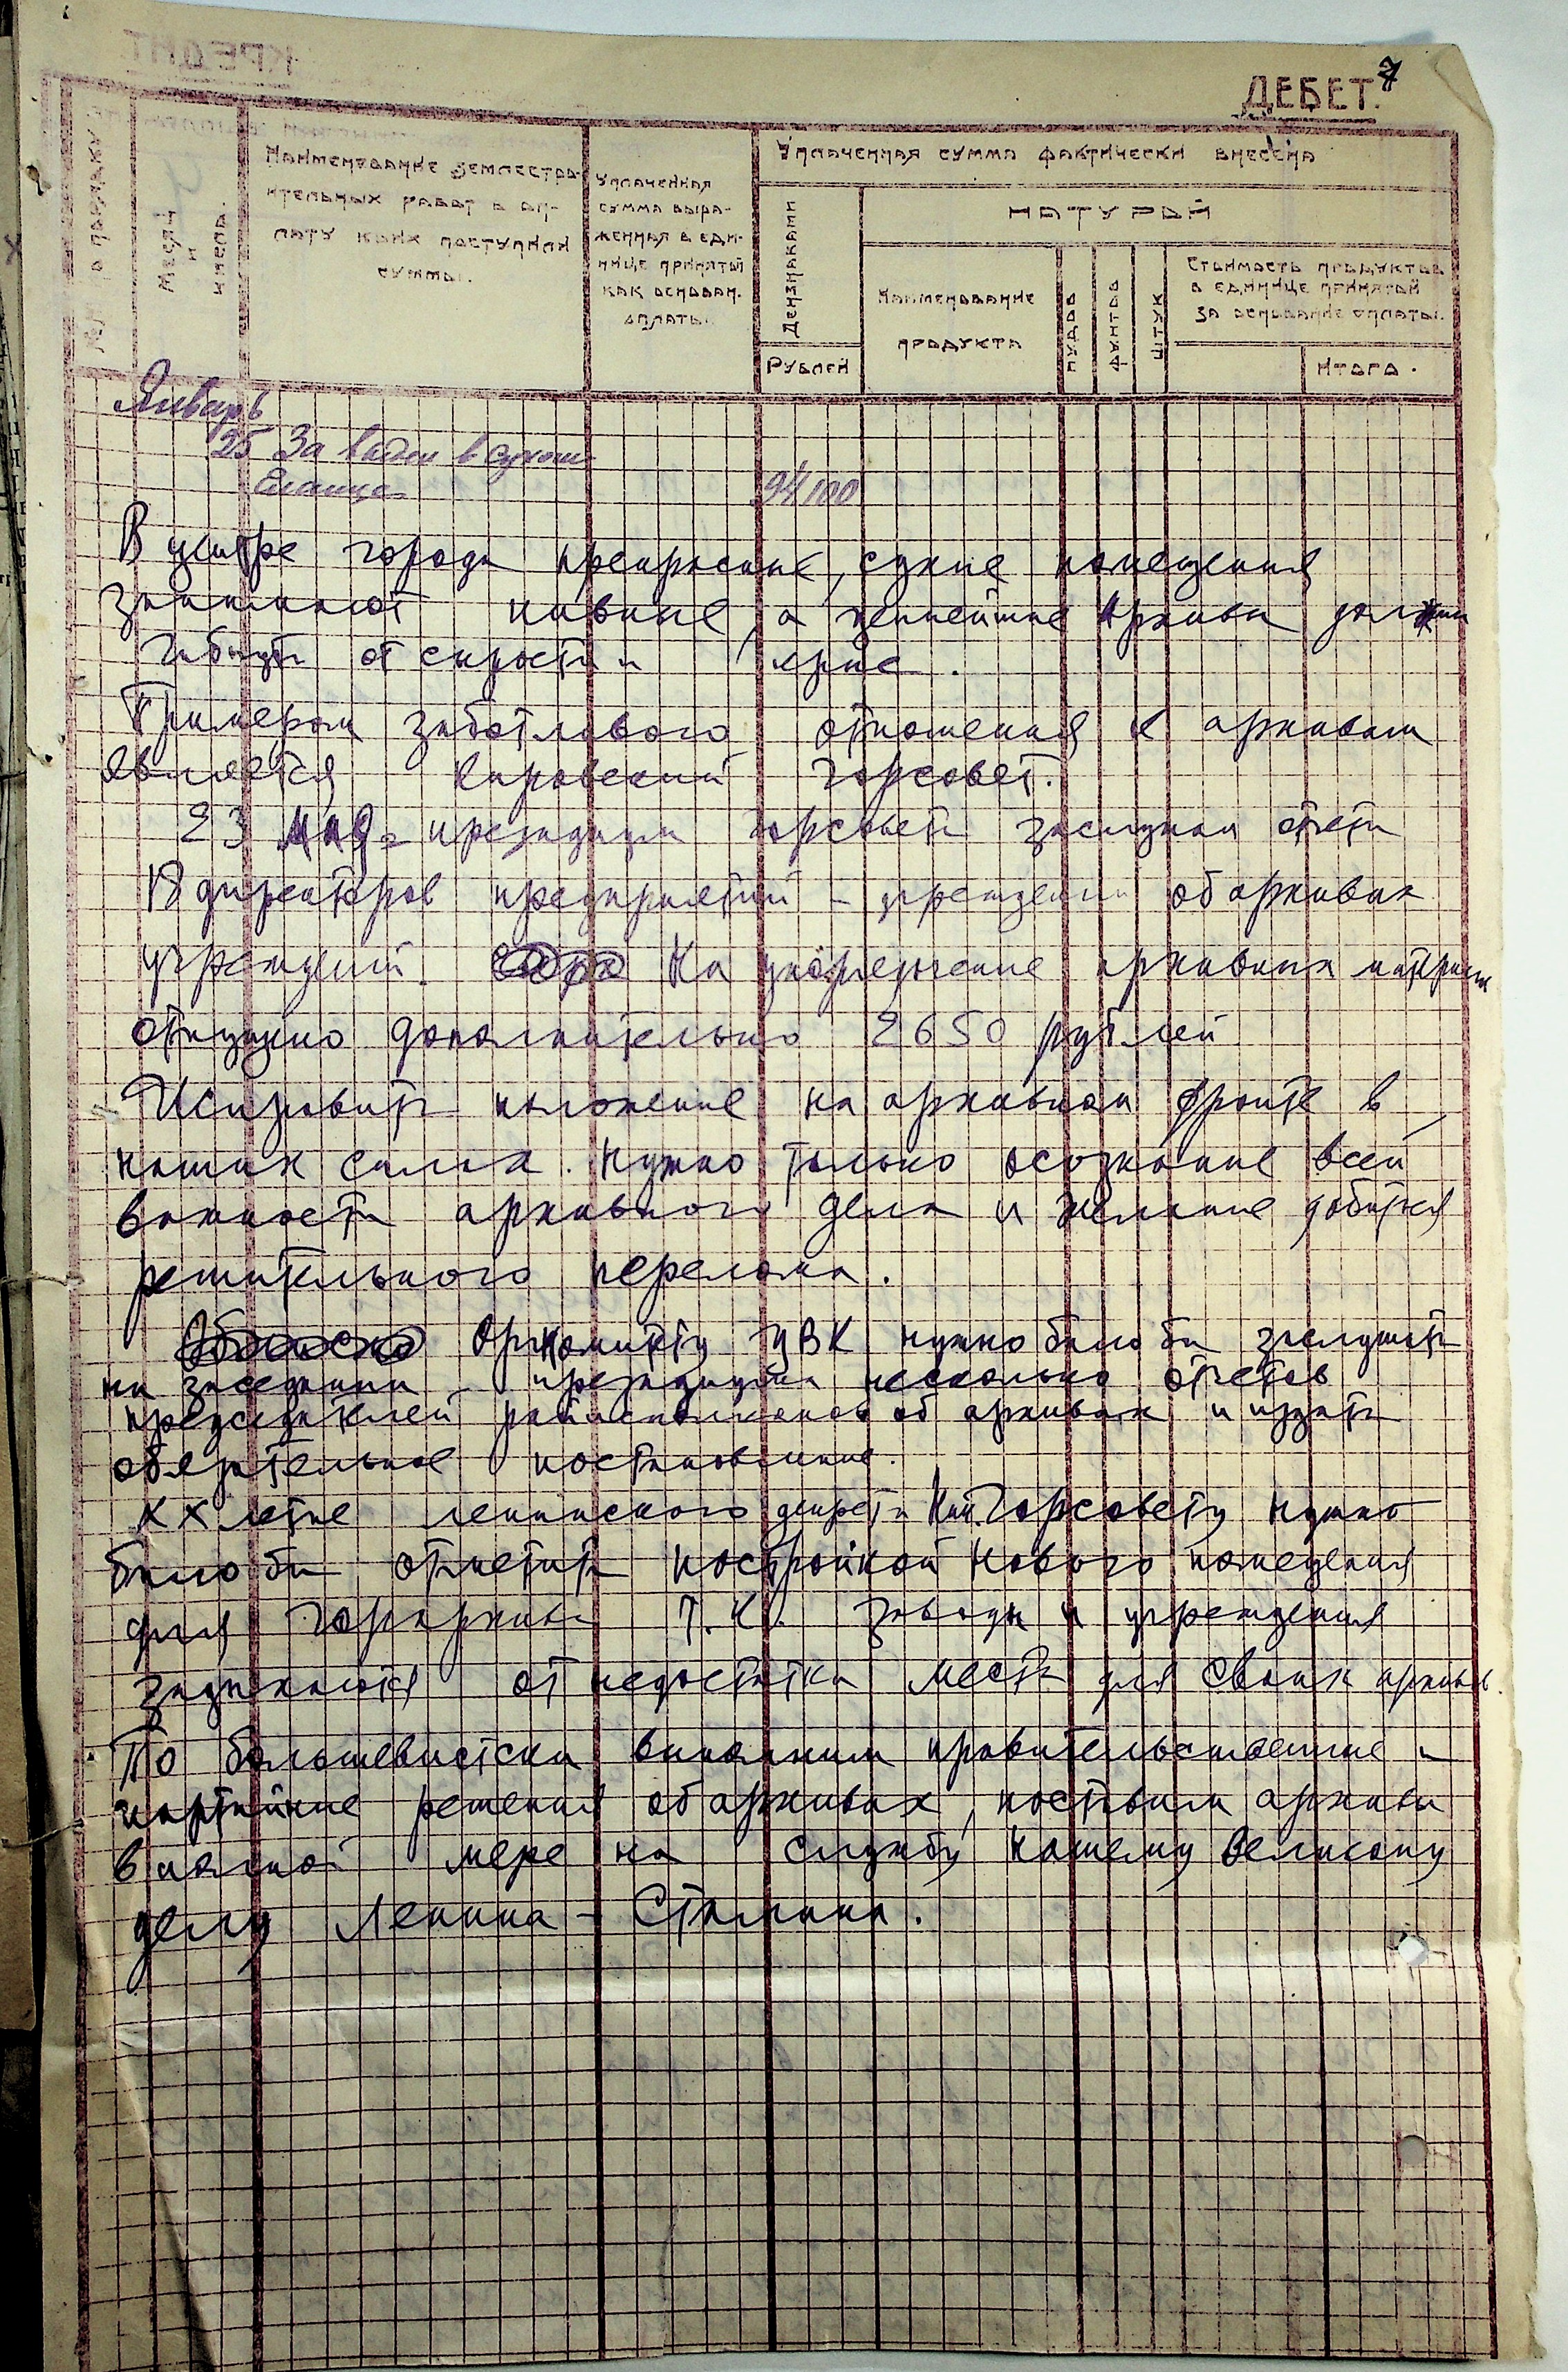 ДЕБЕТ. 7
№№ по порядку.
Месяц и число.
Наименование землестро-
ительных работ в оп-
лату коих поступили
суммы.
Уплаченная
сумма выра-
женная в еди-
нице принятой
как основан.
оплаты.
Уплаченная сумма фактически внесена
Дензнаками
Рублей
НАТУРОЙ
Наименование
продукта
Пудов
Фунтов
Штук
Стоимость продуктов
в единице принятой
за основание оплаты.
Итого.
Январь
25 За
94100
В центре города прекрасные, сухие помещения
занимают пивные, а ценнейшие архивы должны
гибнуть от сырости и крыс.
Примером заботливого отношения к архивам
является Кировский Горсовет.
23 мая президиум Горсовета заслушал отчеты
18 директоров предприятий - учреждений об архивах
учреждений. На упорядочение архивных материал
отпущено дополнительно 2650 рублей
Исправить положение на архивном фронте в
наших силах. Нужно только осознание всей
важности архивного дела и желание добиться
решительного перелома.
Оргкомитету ЦВК нужно было бы заслушать
на заседании президиума несколько отчетов
председателей райисполкомов об архивах и издать
обязательное постановление.
XX летие ленинского декрета Горсовету нужно
было бы отметить постройкой нового помещения
для Горархива т.к. заводы и учреждения
задыхаются от недостатка места для своих архивов.
По большевистски выполним правительственные и
партийные решения об архивах, поставим архивы
в полной мере на службу нашему великому
делу Ленина - Сталина.